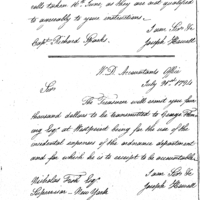 calls taken 16th June, as they are not qualified
to answerably to your instructions.
I am Sir &c
Capt. Richard Sparks. Joseph Howell
W.D. Accountants Office
July 21st 1794
Sir
The Treasurer will remit you four
thousand dollars to be transmitted to George Flem
ing Esqr at Westpoint being for the use of the
incidental expences of the ordnance department
and for which he is to receipt to be accountable.
I am Sir &c
Nicholas Fish Esqr Joseph Howell
Supervisor New York